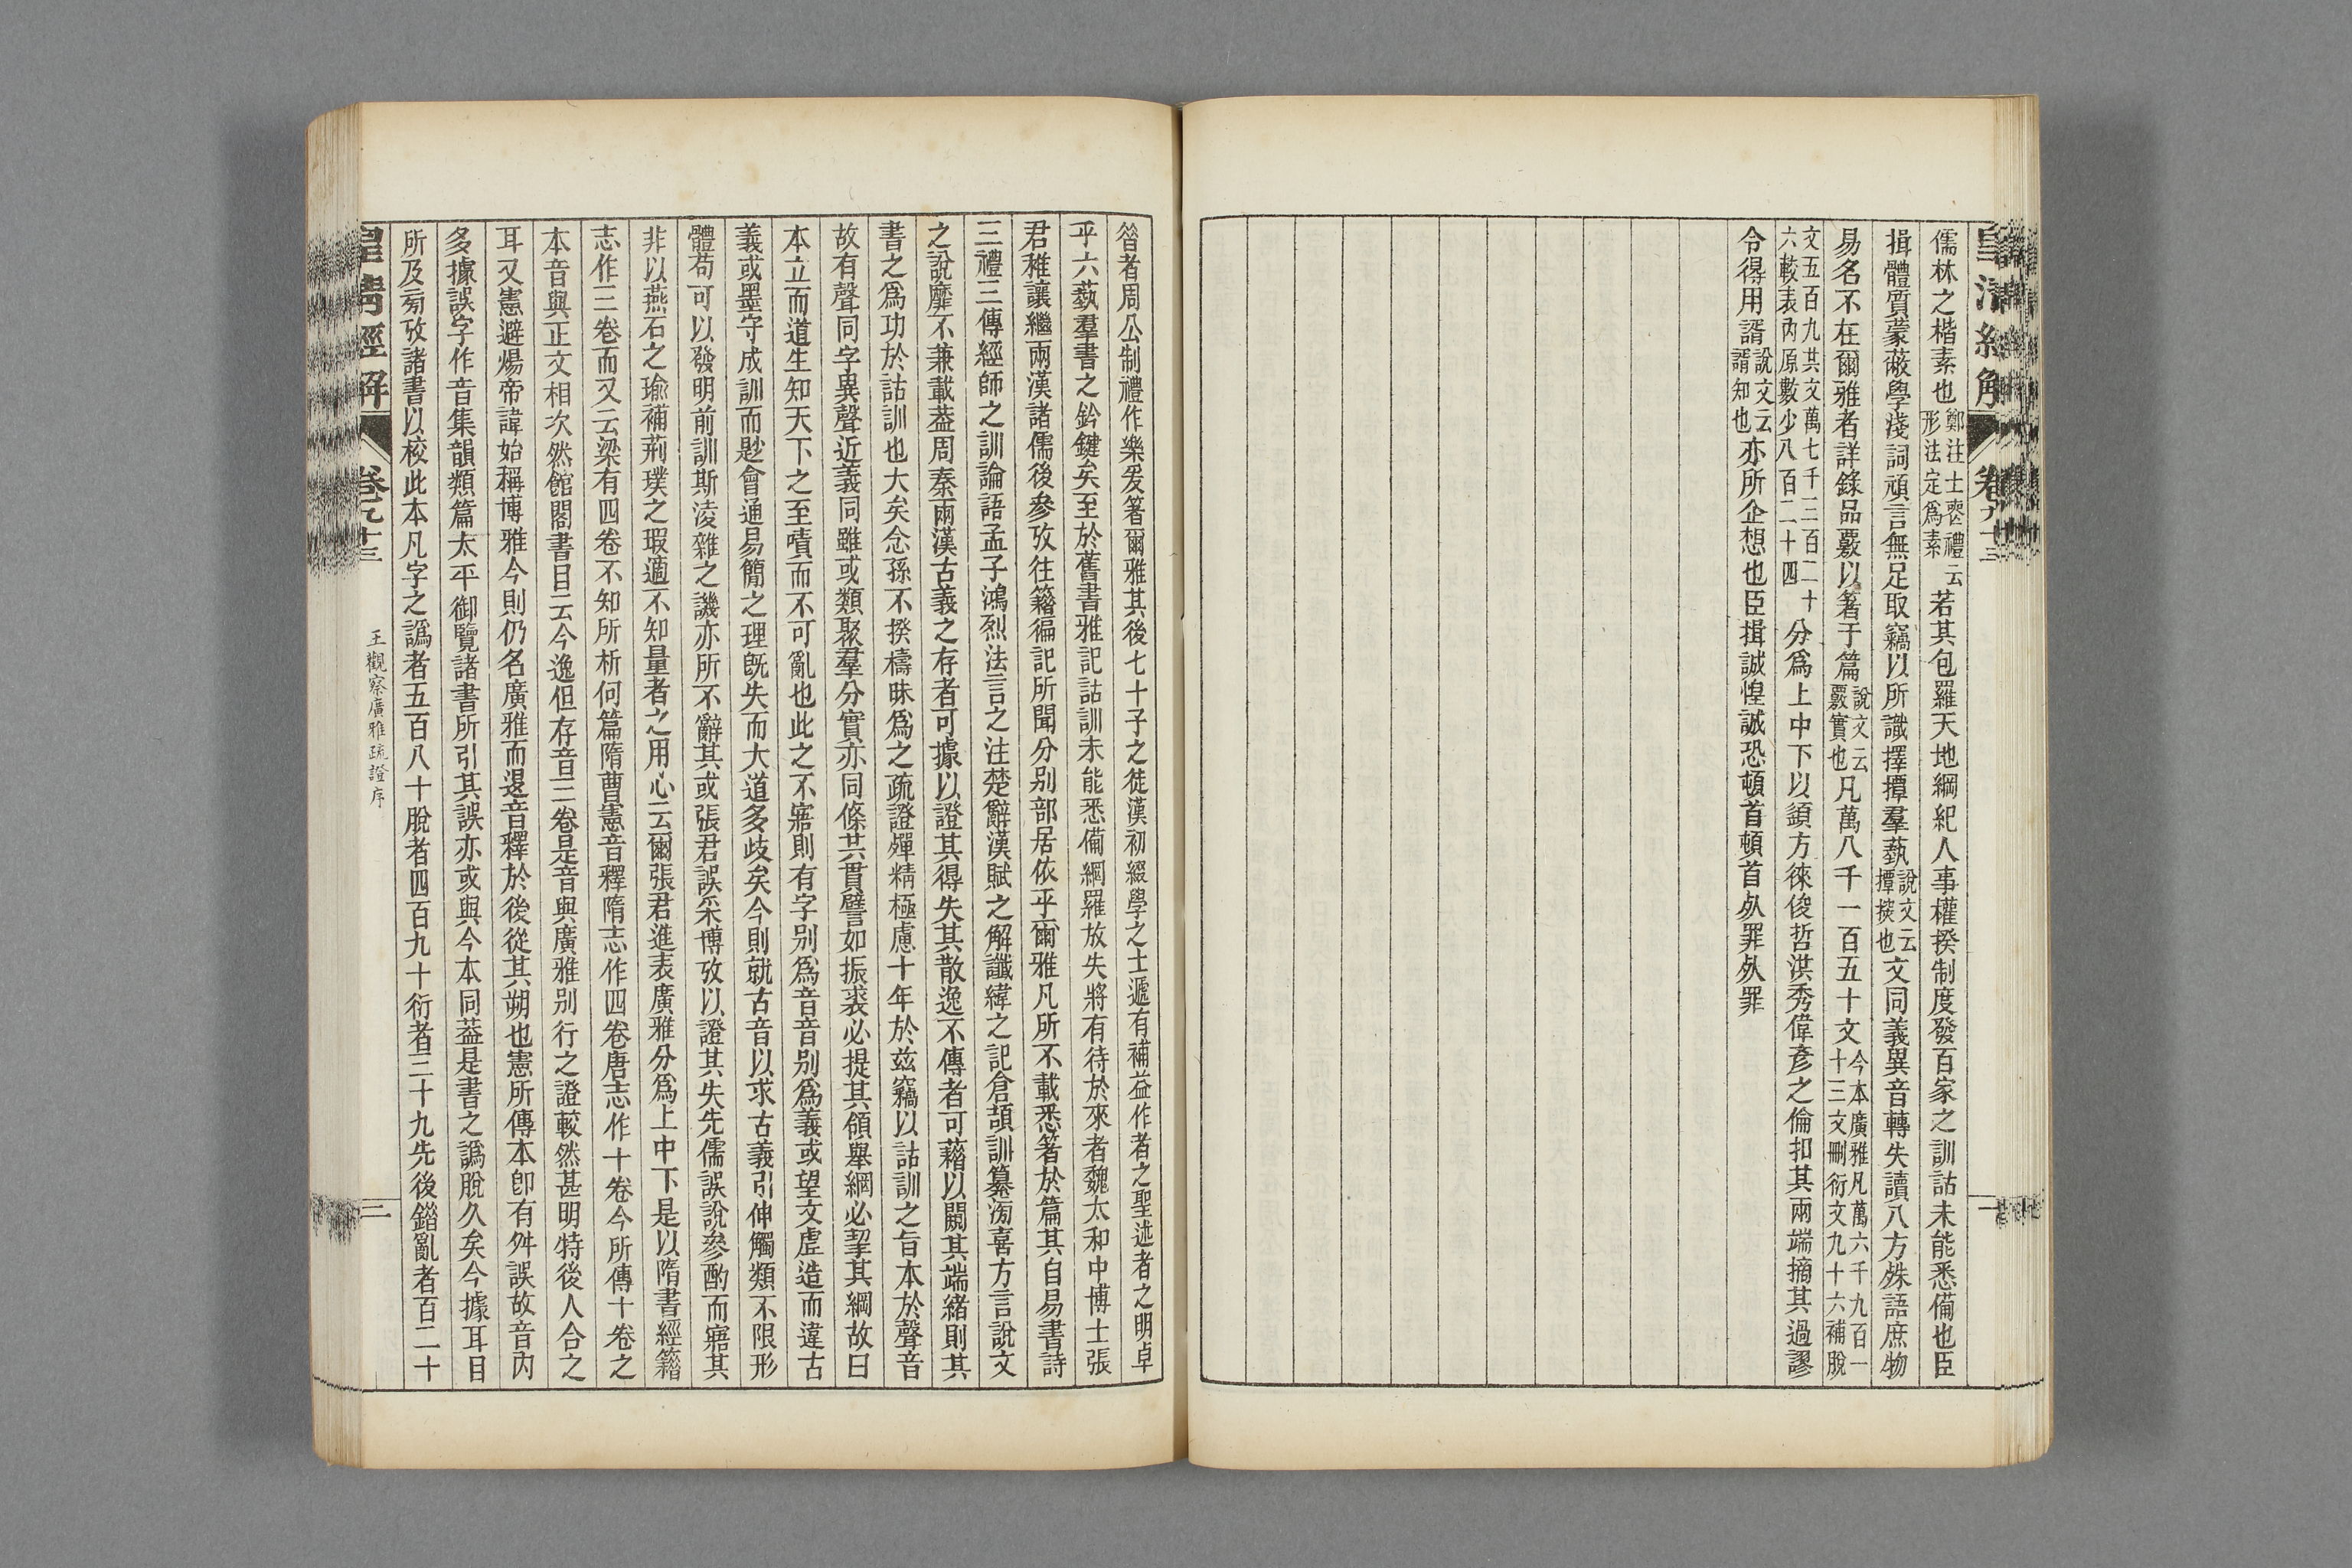 儒林之楷素也鄭注士喪禮云形法定爲素若其包羅天地綱紀人事權揆制度發百家之訓詁未能悉備也臣
揖體質蒙蔽學淺詞頑言無足取竊以所識擇撢羣蓺說文云撢掞也文同義異音轉失讀八方殊語庶物
易名不在爾雅者詳錄品覈以箸于篇說文云覈實也凡萬八千一百五十文今本廣雅凡萬六千九百一十三文刪衍文九十六補脫
文五百九其文萬七千三百二十六較表內原數少八百二十四分爲上中下以䫇方徠俊哲洪秀偉彥之倫扣其兩端摘其過謬
令得用諝說文云諝知也亦所企想也臣揖誠惶誠恐頓首頓首死罪死罪
皇清經解
卷六百六十三
二
昝者周公制禮作樂爰箸爾雅其後七十子之徒漢初綴學之士遞有補益作者之聖述者之明卓
乎六蓺羣書之鈐鍵矣至於舊書雅記詁訓未能悉備綱羅放失將有待於來者魏太和中博士張
君稚讓繼兩漢諸儒後參攷往籍徧記所聞分別部居依乎爾雅凡所不載悉箸於篇其自易書詩
三禮三傳經師之訓論語孟子鴻烈法言之注楚辭漢賦之解讖緯之記倉頡訓纂滂喜方言說文
之說靡不兼載葢周秦兩漢古義之存者可據以證其得失其散逸不傳者可藉以闚其端緒則其
書之爲功於詁訓也大矣念孫不揆檮昧爲之疏證殫精極慮十年於茲竊以詁訓之旨本於聲音
故有聲同字異聲近義同雖或類聚羣分實亦同條共貫譬如振裘必提其領舉綱必挈其綱故曰
本立而道生知天下之至嘖而不可亂也此之不寤則有字別爲音音別爲義或望文虛造而違古
義或墨守成訓而尟會通易簡之理旣失而大道多歧矣今則就古音以求古義引伸觸類不限形
體苟可以發明前訓斯淩雜之譏亦所不辭其或張君誤采博攷以證其失先儒誤說參酌而寤其
非以燕石之瑜補荊璞之瑕適不知量者之用心云爾張君進表廣雅分爲上中下是以隋書經籍
志作三卷而又云梁有四卷不知所析何篇隋曹憲音釋隋志作四卷唐志作十卷今所傳十卷之
本音與正文相次然館閣書目云今逸但存音三卷是音與廣雅別行之證較然甚明特後人合之
耳又憲避煬帝諱始稱博雅今則仍名廣雅而退音釋於後從其朔也憲所傳本卽有舛誤故音內
多據誤字作音集韻類篇太平御覽諸書所引其誤亦或與今本同葢是書之譌脫久矣今據耳目
所及旁攷諸書以校此本凡字之譌者五百八十脫者四百九十衍者三十九先後錯亂者百二十
皇清經解
王觀察廣雅疏證序
三